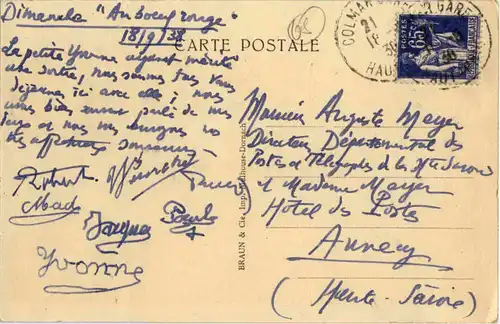 Dimanche "Au boeuf rouge"
18/9/38
CARTE POSTALE
68
COLMAR GARE
21
18
38
HAUT-RHIN
POSTES
65c
La petite Yvonne ayant mérité
une sortie, nous sommes tous venus
déjeuner ici avec elle ; nous
avons bien aussi parlé de vous
tous et nous vous envoyons nos
affectueux souvenirs
Robert
Mad
Jacques
Paule
Yvonne
BRAUN & Cie, Imp. Mulhouse-Dornach
Monsieur Auguste Meyer
Directeur Départemental des
Postes et Télégraphes de la Hte Savoie
et Madame Meyer
Hôtel des Postes
Annecy
(Haute-Savoie)